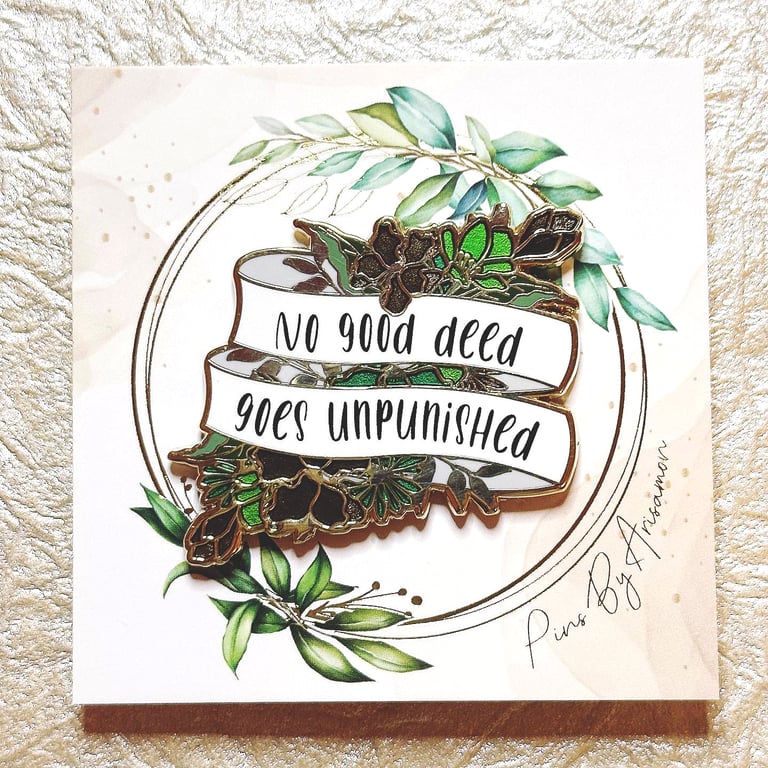 No good deed
goes unpunished
Pins By Arisamon